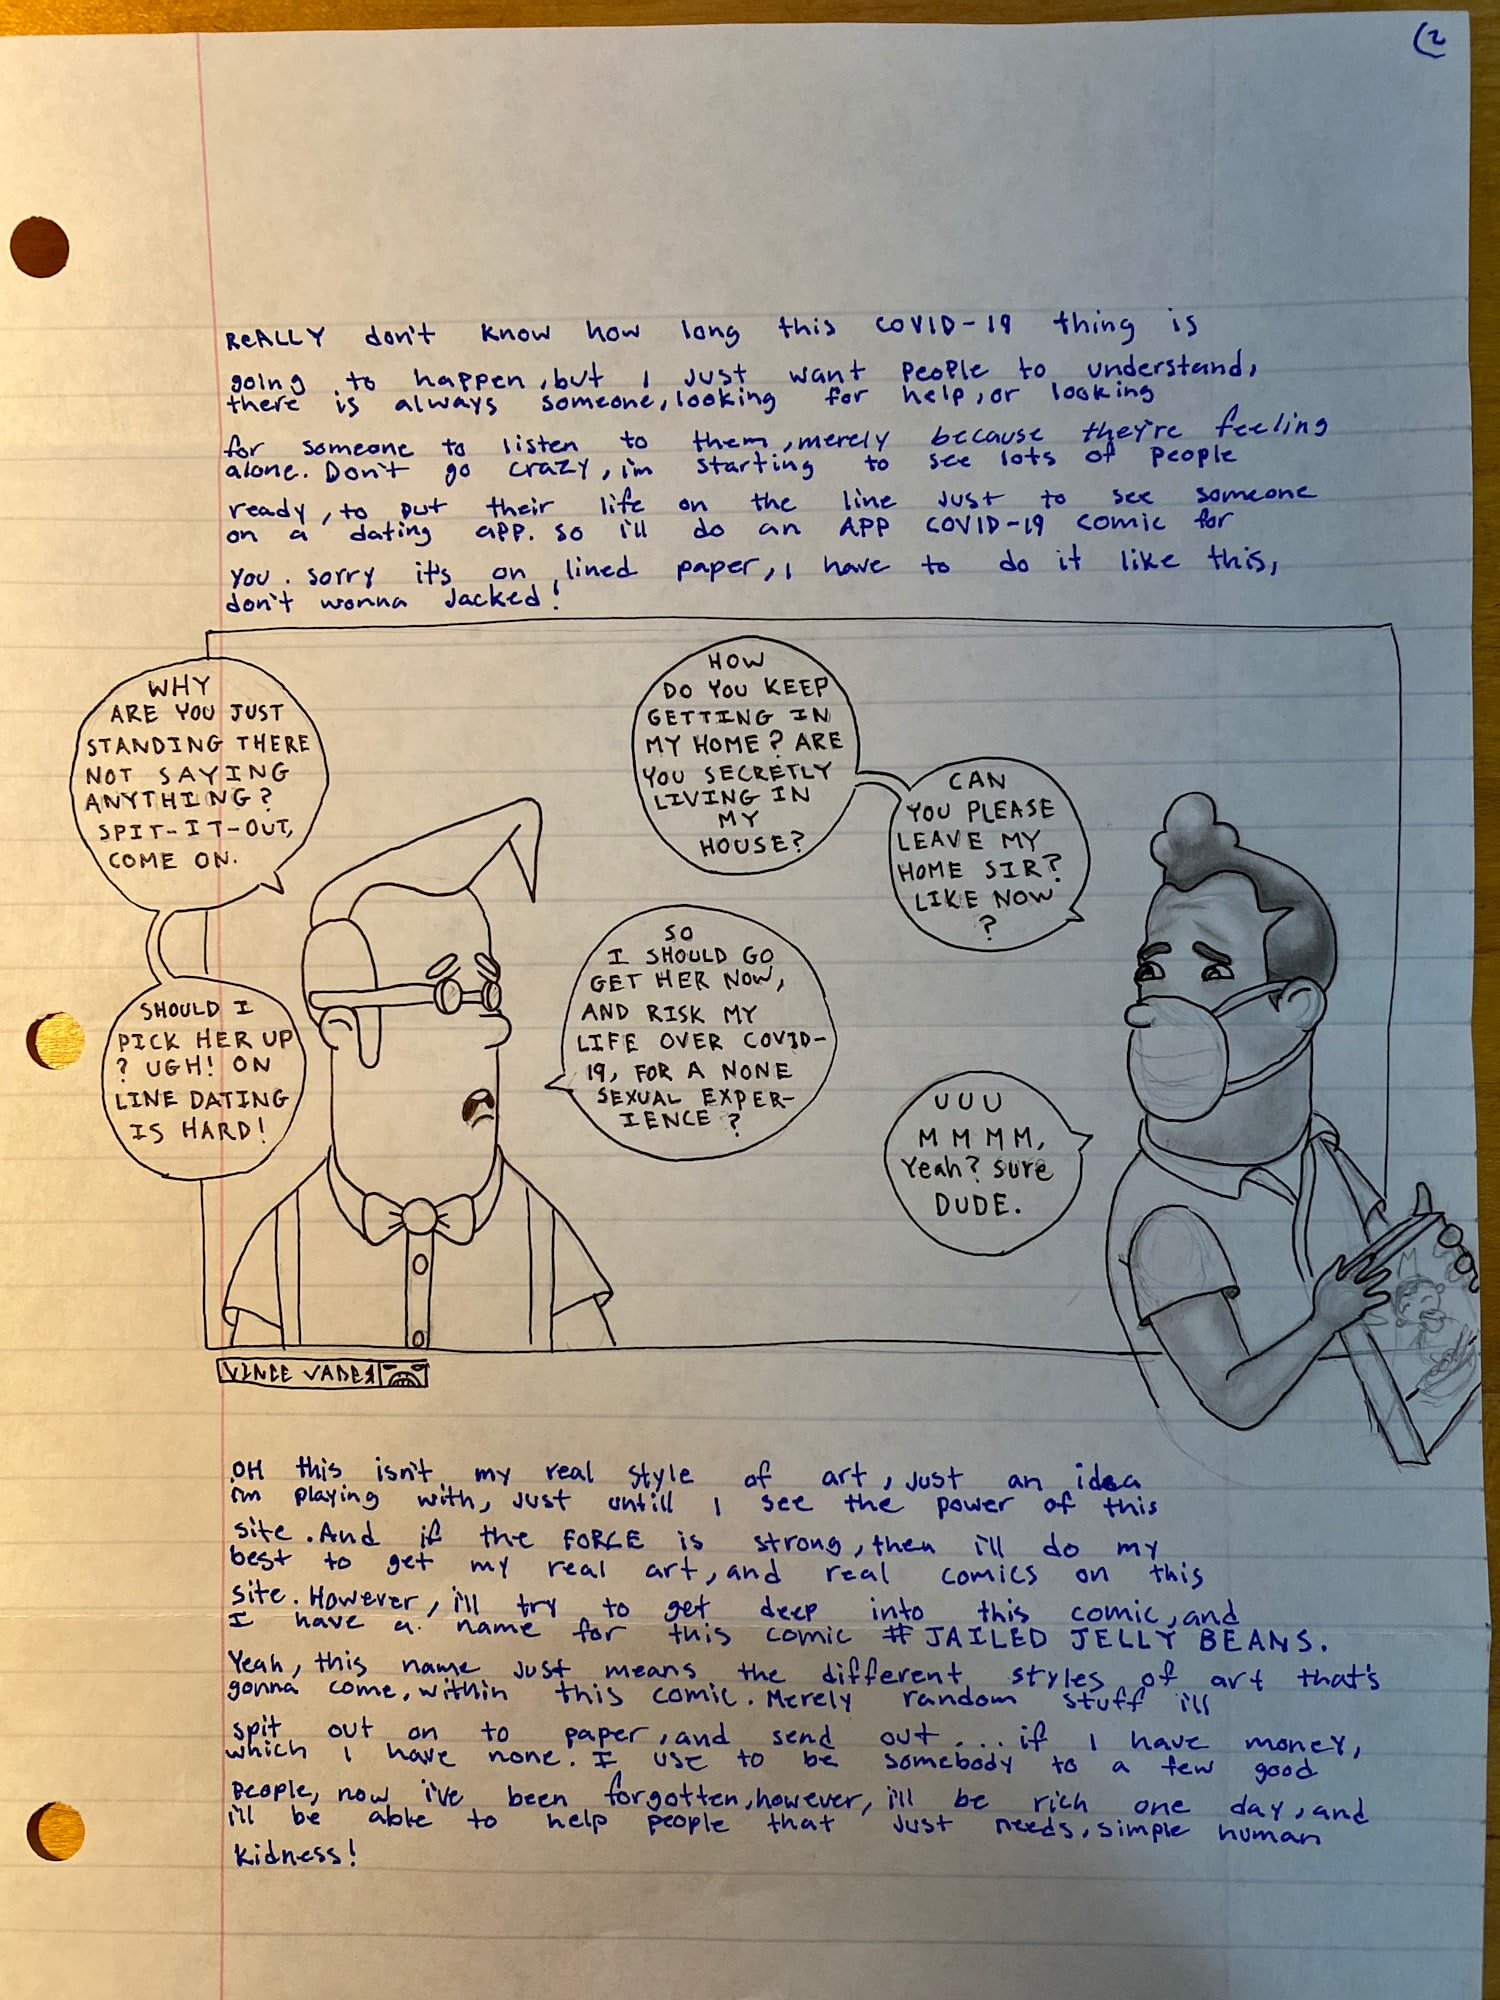 (2
REALLY don't know how long this COVID-19 thing is
going to happen, but I just want people to understand,
there is always someone, looking for help, or looking
for someone to listen to them, merely because they're feeling
alone. Don't go crazy, i'm starting to see lots of people
ready, to put their life on the line just to see someone
on a dating app. so i'll do an APP COVID-19 comic for
you. sorry it's on lined paper, I have to do it like this,
don't wonna Jacked!
WHY
ARE YOU JUST
STANDING THERE
NOT SAYING
ANYTHING?
SPIT-IT-OUT,
COME ON.
SHOULD I
PICK HER UP
? UGH! ON
LINE DATING
IS HARD!
HOW
DO YOU KEEP
GETTING IN
MY HOME? ARE
YOU SECRETLY
LIVING IN
MY
HOUSE?
CAN
YOU PLEASE
LEAVE MY
HOME SIR?
LIKE NOW
?
SO
I SHOULD GO
GET HER NOW,
AND RISK MY
LIFE OVER COVID-
19, FOR A NONE
SEXUAL EXPER-
IENCE?
UUU
MMMM,
Yeah? sure
DUDE.
VINCE VADER
OH this isn't my real style of art, just an idea
i'm playing with, just untill I see the power of this
site. And if the FORCE is strong, then i'll do my
best to get my real art, and real comics on this
site. However, i'll try to get deep into this comic, and
I have a name for this comic # JAILED JELLY BEANS.
Yeah, this name just means the different styles of art that's
gonna come, within this comic. Merely random stuff ill
spit out on to paper, and send out... if I have money,
which I have none. I use to be somebody to a few good
people, now i've been forgotten, however, i'll be rich one day, and
i'll be able to help people that just needs, simple human
kidness!